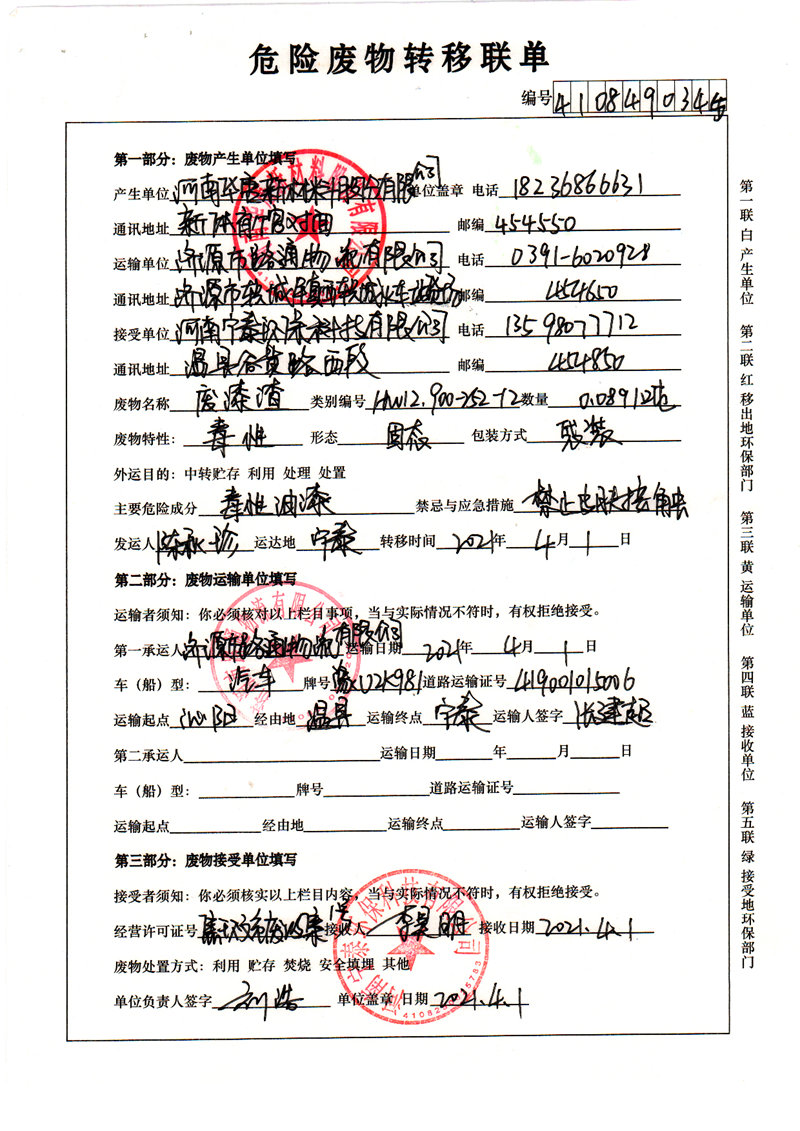 危险废物转移联单
编号 4108490345
第一部分：废物产生单位填写
产生单位 河南 新材料股份有限公司 单位盖章 电话 18236866631
通讯地址 新体育馆对面 邮编 454550
运输单位 济源市路通物流有限公司 电话 0391-6020928
通讯地址 济源市轵城镇西轵城 邮编 454650
接受单位 河南宇泰环保科技有限公司 电话 13598077712
通讯地址 温县谷黄路西段 邮编 454850
废物名称 废漆渣 类别编号 HW12.900-252-12 数量 0.08912吨
废物特性： 毒性 形态 固态 包装方式 袋装
外运目的：中转贮存 利用 处理 处置
主要危险成分 毒性油漆 禁忌与应急措施 禁止皮肤接触
发运人 运达地 宇泰 转移时间 2021年 4月 1日
第二部分：废物运输单位填写
运输者须知：你必须核对以上栏目事项，当与实际情况不符时，有权拒绝接受。
第一承运人 济源市路通物流有限公司 运输日期 2021年 4月 1日
车（船）型： 汽车 牌号 豫U2K981 道路运输证号 419001015006
运输起点 沁阳 经由地 温县 运输终点 宇泰 运输人签字 张建超
第二承运人 运输日期 年 月 日
车（船）型： 牌号 道路运输证号
运输起点 经由地 运输终点 运输人签字
第三部分：废物接受单位填写
接受者须知：你必须核实以上栏目内容，当与实际情况不符时，有权拒绝接受。
经营许可证号 接收人 李昊明 接收日期 2021.4.1
废物处置方式：利用 贮存 焚烧 安全填埋 其他
单位负责人签字 刘浩 单位盖章 日期 2021.4.1
第一联 白 产生单位
第二联 红 移出地环保部门
第三联 黄 运输单位
第四联 蓝 接收单位
第五联 绿 接受地环保部门